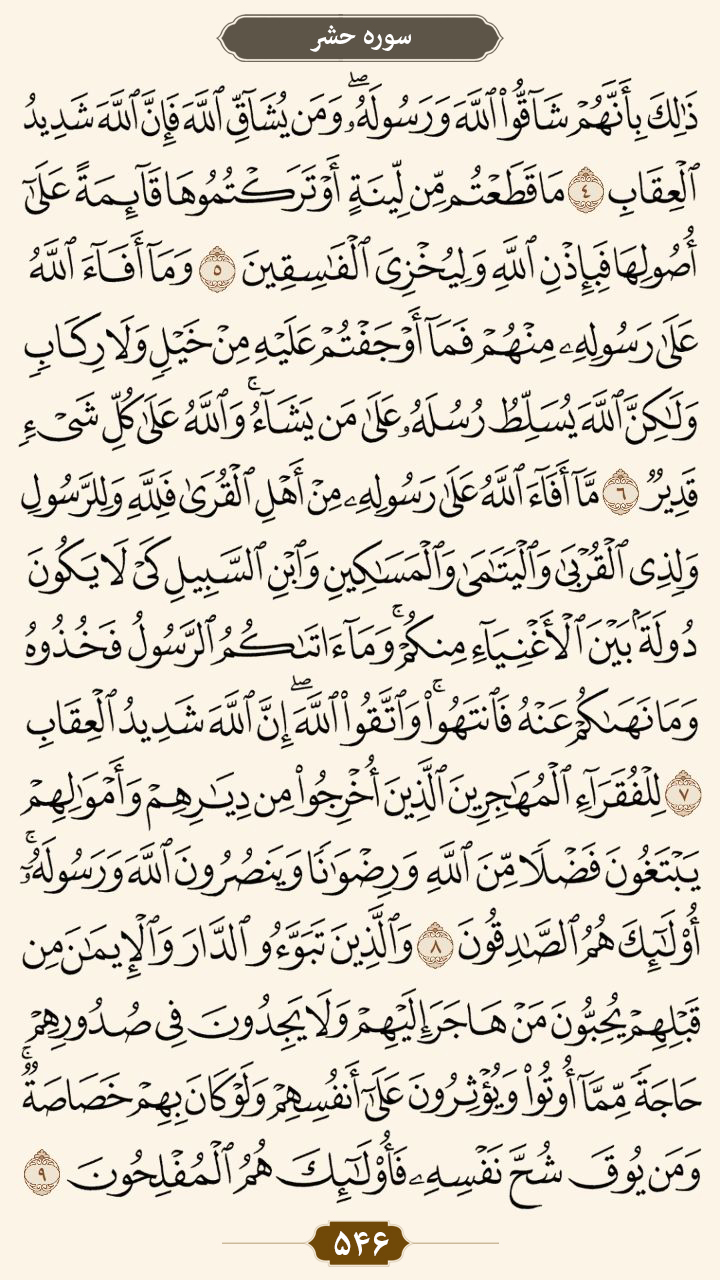 سوره حشر
ذَٰلِكَ بِأَنَّهُمْ شَآقُّوا۟ ٱللَّهَ وَرَسُولَهُۥ ۖ وَمَن يُشَآقِّ ٱللَّهَ فَإِنَّ ٱللَّهَ شَدِيدُ
ٱلْعِقَابِ ٤ مَا قَطَعْتُم مِّن لِّينَةٍ أَوْ تَرَكْتُمُوهَا قَآئِمَةً عَلَىٰٓ
أُصُولِهَا فَبِإِذْنِ ٱللَّهِ وَلِيُخْزِىَ ٱلْفَٰسِقِينَ ٥ وَمَآ أَفَآءَ ٱللَّهُ
عَلَىٰ رَسُولِهِۦ مِنْهُمْ فَمَآ أَوْجَفْتُمْ عَلَيْهِ مِنْ خَيْلٍ وَلَا رِكَابٍ
وَلَٰكِنَّ ٱللَّهَ يُسَلِّطُ رُسُلَهُۥ عَلَىٰ مَن يَشَآءُ ۚ وَٱللَّهُ عَلَىٰ كُلِّ شَىْءٍ
قَدِيرٌ ٦ مَّآ أَفَآءَ ٱللَّهُ عَلَىٰ رَسُولِهِۦ مِنْ أَهْلِ ٱلْقُرَىٰ فَلِلَّهِ وَلِلرَّسُولِ
وَلِذِى ٱلْقُرْبَىٰ وَٱلْيَتَٰمَىٰ وَٱلْمَسَٰكِينِ وَٱبْنِ ٱلسَّبِيلِ كَىْ لَا يَكُونَ
دُولَةًۢ بَيْنَ ٱلْأَغْنِيَآءِ مِنكُمْ ۚ وَمَآ ءَاتَىٰكُمُ ٱلرَّسُولُ فَخُذُوهُ
وَمَا نَهَىٰكُمْ عَنْهُ فَٱنتَهُوا۟ ۚ وَٱتَّقُوا۟ ٱللَّهَ ۖ إِنَّ ٱللَّهَ شَدِيدُ ٱلْعِقَابِ
٧ لِلْفُقَرَآءِ ٱلْمُهَٰجِرِينَ ٱلَّذِينَ أُخْرِجُوا۟ مِن دِيَٰرِهِمْ وَأَمْوَٰلِهِمْ
يَبْتَغُونَ فَضْلًا مِّنَ ٱللَّهِ وَرِضْوَٰنًا وَيَنصُرُونَ ٱللَّهَ وَرَسُولَهُۥٓ ۚ
أُو۟لَٰٓئِكَ هُمُ ٱلصَّٰدِقُونَ ٨ وَٱلَّذِينَ تَبَوَّءُو ٱلدَّارَ وَٱلْإِيمَٰنَ مِن
قَبْلِهِمْ يُحِبُّونَ مَنْ هَاجَرَ إِلَيْهِمْ وَلَا يَجِدُونَ فِى صُدُورِهِمْ
حَاجَةً مِّمَّآ أُوتُوا۟ وَيُؤْثِرُونَ عَلَىٰٓ أَنفُسِهِمْ وَلَوْ كَانَ بِهِمْ خَصَاصَةٌ ۚ
وَمَن يُوقَ شُحَّ نَفْسِهِۦ فَأُو۟لَٰٓئِكَ هُمُ ٱلْمُفْلِحُونَ ٩
۵۴۶